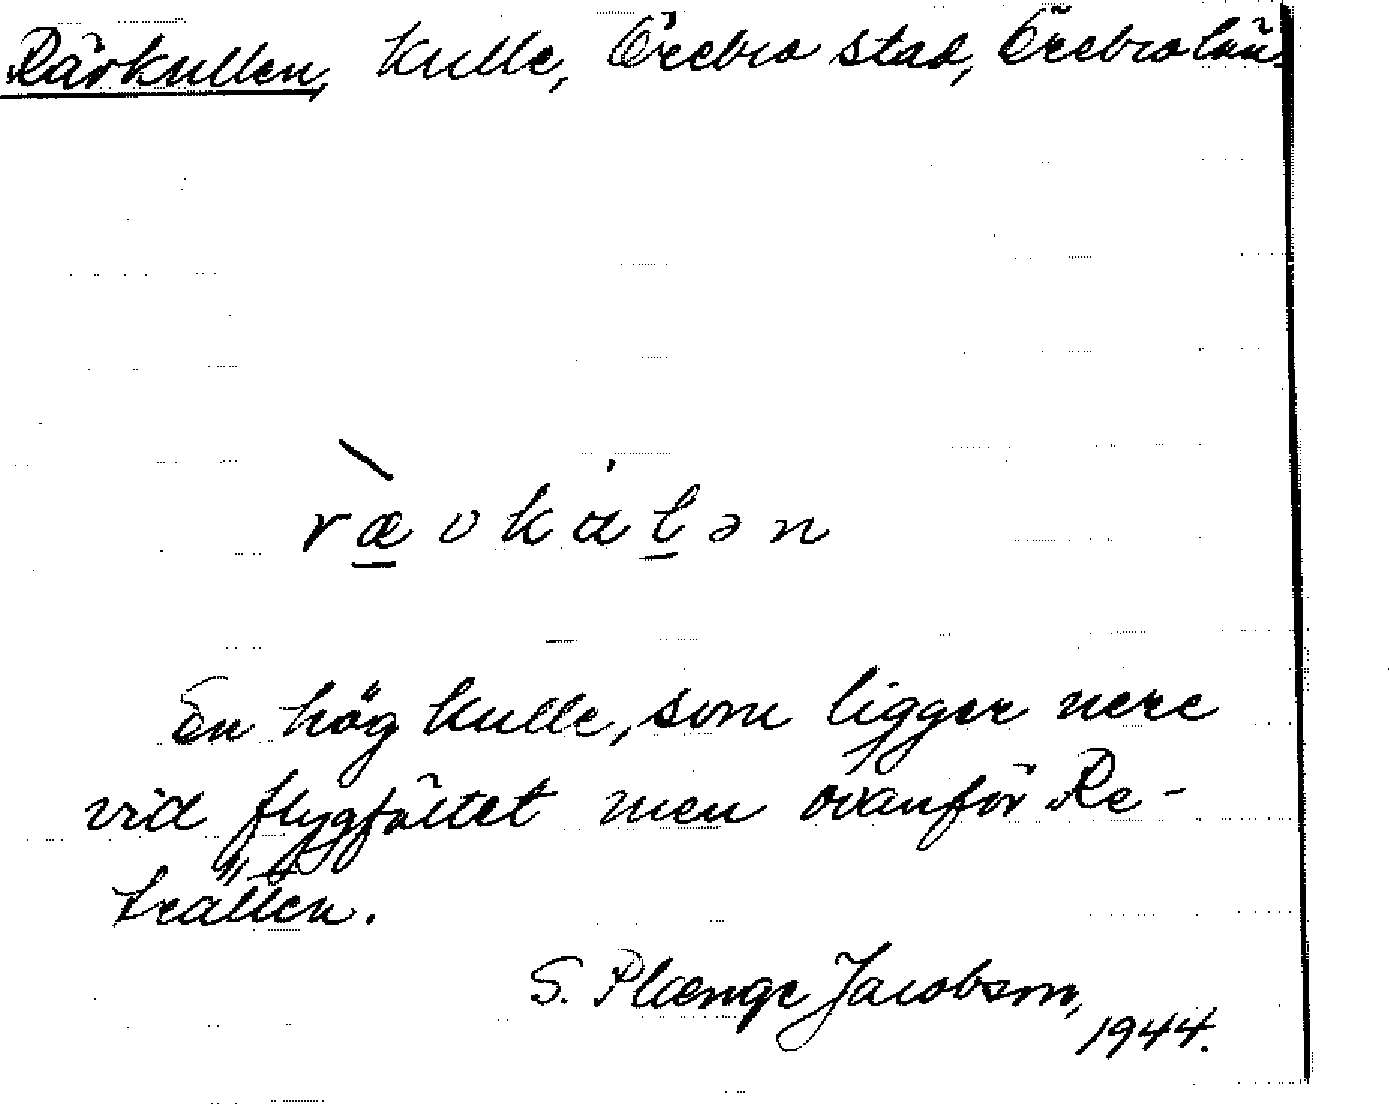 Rävkullen, kulle, Örebro stad, Örebro län.
rævkɯlən
En hög kulle, som ligger nere
vid flygfältet men ovanför Re-
trätten.
S. Plænge Jacobson,
1944.